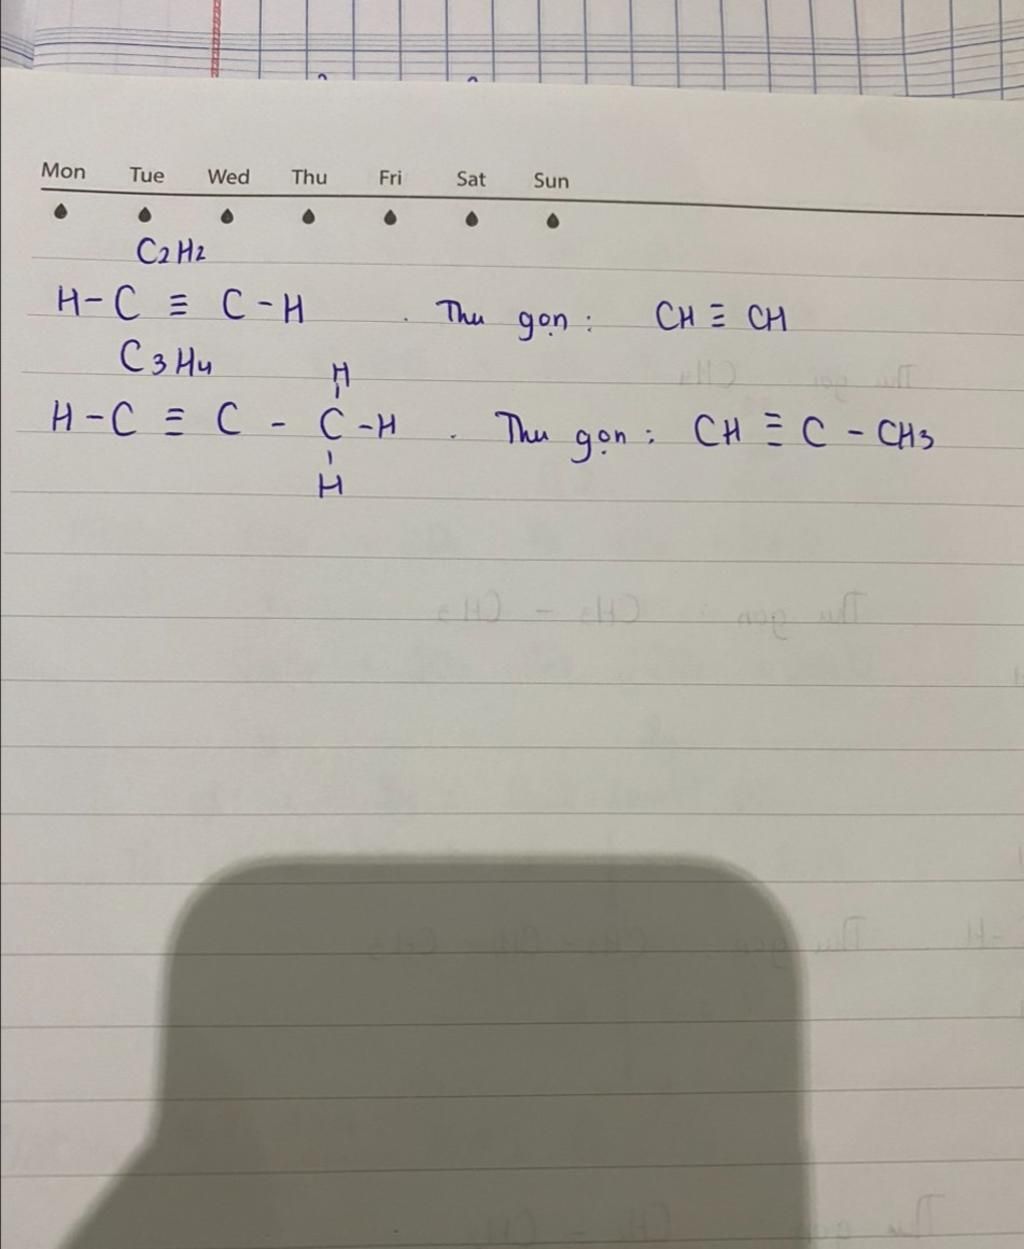 Mon Tue Wed Thu Fri Sat Sun
C2H2
H-C ≡ C-H . Thu gọn : CH ≡ CH
C3H4
H
H-C ≡ C - C-H . Thu gọn : CH ≡ C - CH3
H
Thu gọn : CH3 - CH3